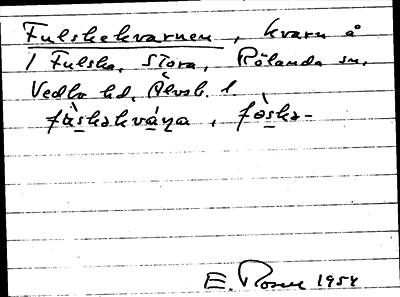 Fulskekvarnen, kvarn å
1 Fulska, Stora, Rölanda sn,
Vedbo hd, Älvsb. l.
fùskəkváɳa, fòskə-
E. Rosen 1954